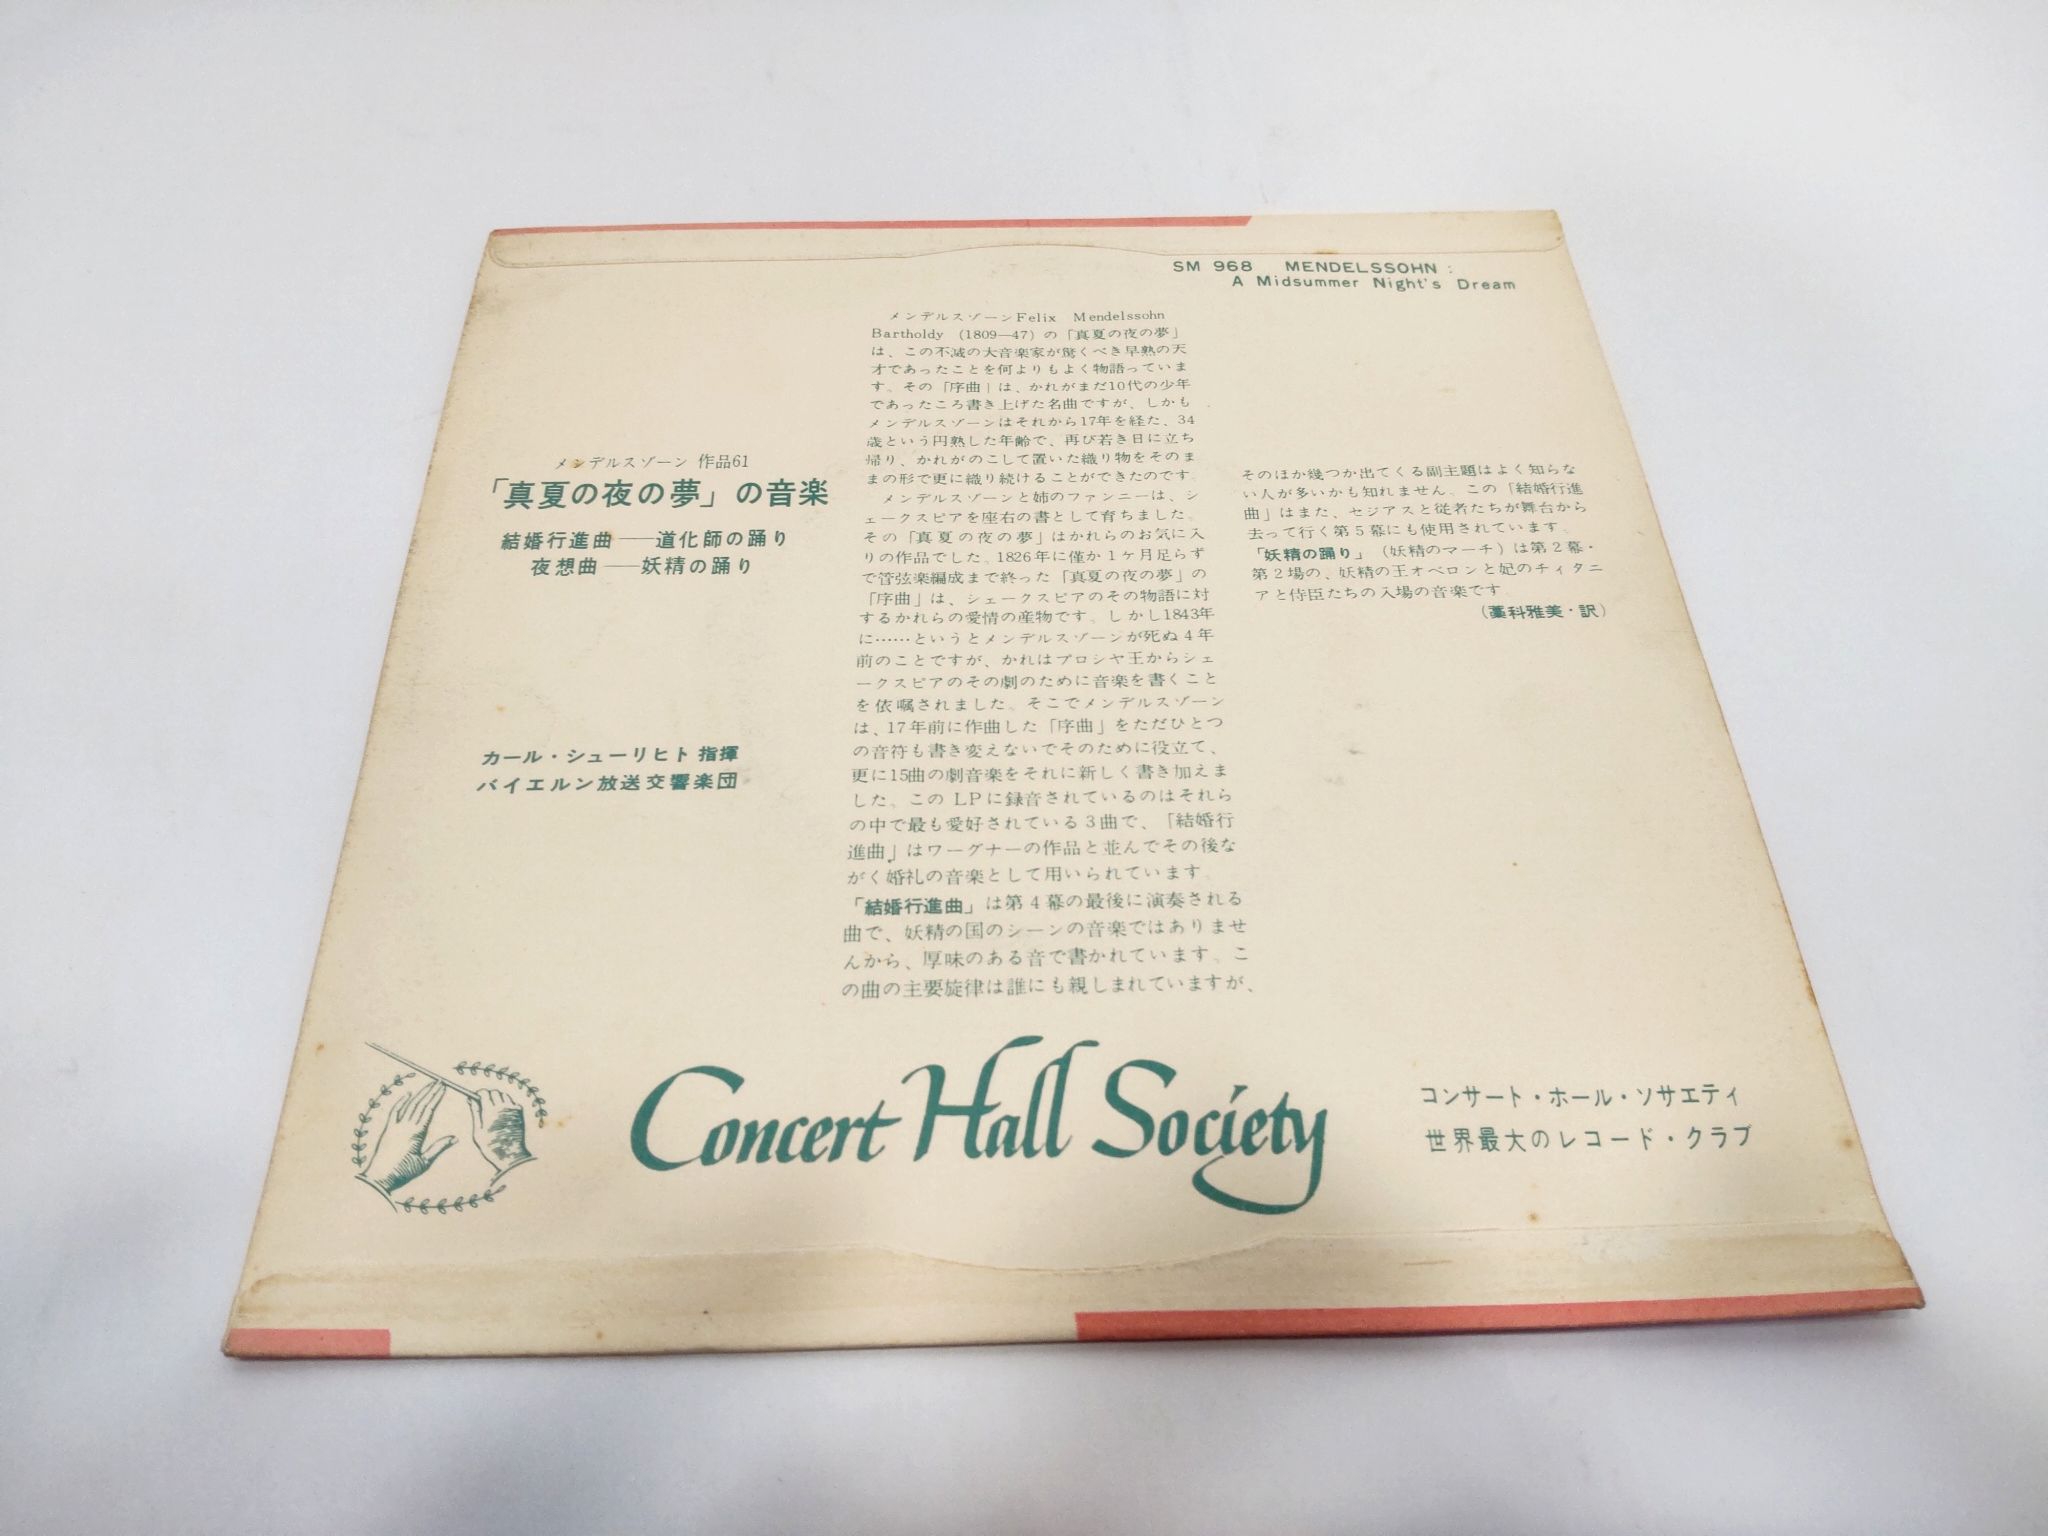 SM 968 MENDELSSOHN :
A Midsummer Night's Dream
メンデルスゾーン 作品61
「真夏の夜の夢」の音楽
結婚行進曲──道化師の踊り
夜想曲──妖精の踊り
カール・シューリヒト 指揮
バイエルン放送交響楽団
メンデルスゾーンFelix Mendelssohn
Bartholdy (1809—47) の「真夏の夜の夢」
は、この不滅の大音楽家が驚くべき早熟の天
才であったことを何よりもよく物語っていま
す。その「序曲」は、かれがまだ10代の少年
であったころ書き上げた名曲ですが、しかも
メンデルスゾーンはそれから17年を経た、34
歳という円熟した年齢で、再び若き日に立ち
帰り、かれがのこして置いた織り物をそのま
まの形で更に織り続けることができたのです。
メンデルスゾーンと姉のファンニーは、シ
ェークスピアを座右の書として育ちました。
その「真夏の夜の夢」はかれらのお気に入
りの作品でした。1826年に僅か1ヶ月足らず
で管弦楽編成まで終った「真夏の夜の夢」の
「序曲」は、シェークスピアのその物語に対
するかれらの愛情の産物です。しかし1843年
に……というとメンデルスゾーンが死ぬ4年
前のことですが、かれはプロシヤ王からシェ
ークスピアのその劇のために音楽を書くこと
を依嘱されました。そこでメンデルスゾーン
は、17年前に作曲した「序曲」をただひとつ
の音符も書き変えないでそのために役立て、
更に15曲の劇音楽をそれに新しく書き加えま
した。この LPに録音されているのはそれら
の中で最も愛好されている3曲で、「結婚行
進曲」はワーグナーの作品と並んでその後な
がく婚礼の音楽として用いられています。
「結婚行進曲」は第4幕の最後に演奏される
曲で、妖精の国のシーンの音楽ではありませ
んから、厚味のある音で書かれています。こ
の曲の主要旋律は誰にも親しまれていますが、
そのほか幾つか出てくる副主題はよく知らな
い人が多いかも知れません。この「結婚行進
曲」はまた、セジアスと従者たちが舞台から
去って行く第5幕にも使用されています。
「妖精の踊り」(妖精のマーチ)は第2幕・
第2場の、妖精の王オベロンと妃のチィタニ
アと侍臣たちの入場の音楽です。
(藁科雅美・訳)
Concert Hall Society
コンサート・ホール・ソサエティ
世界最大のレコード・クラブ